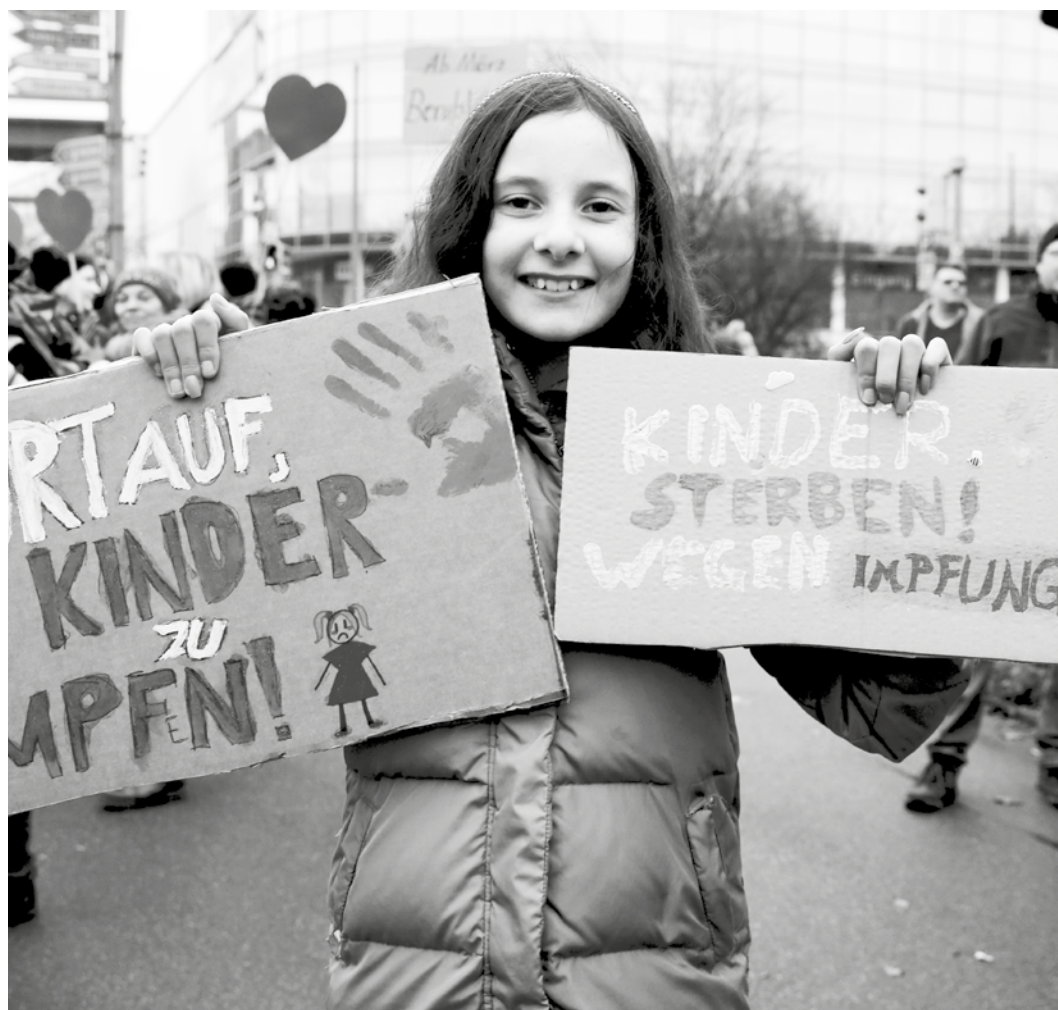 Ab März
RT AUF,
KINDER
ZU
MPFEN!
KINDER
STERBEN!
WEGEN IMPFUNG